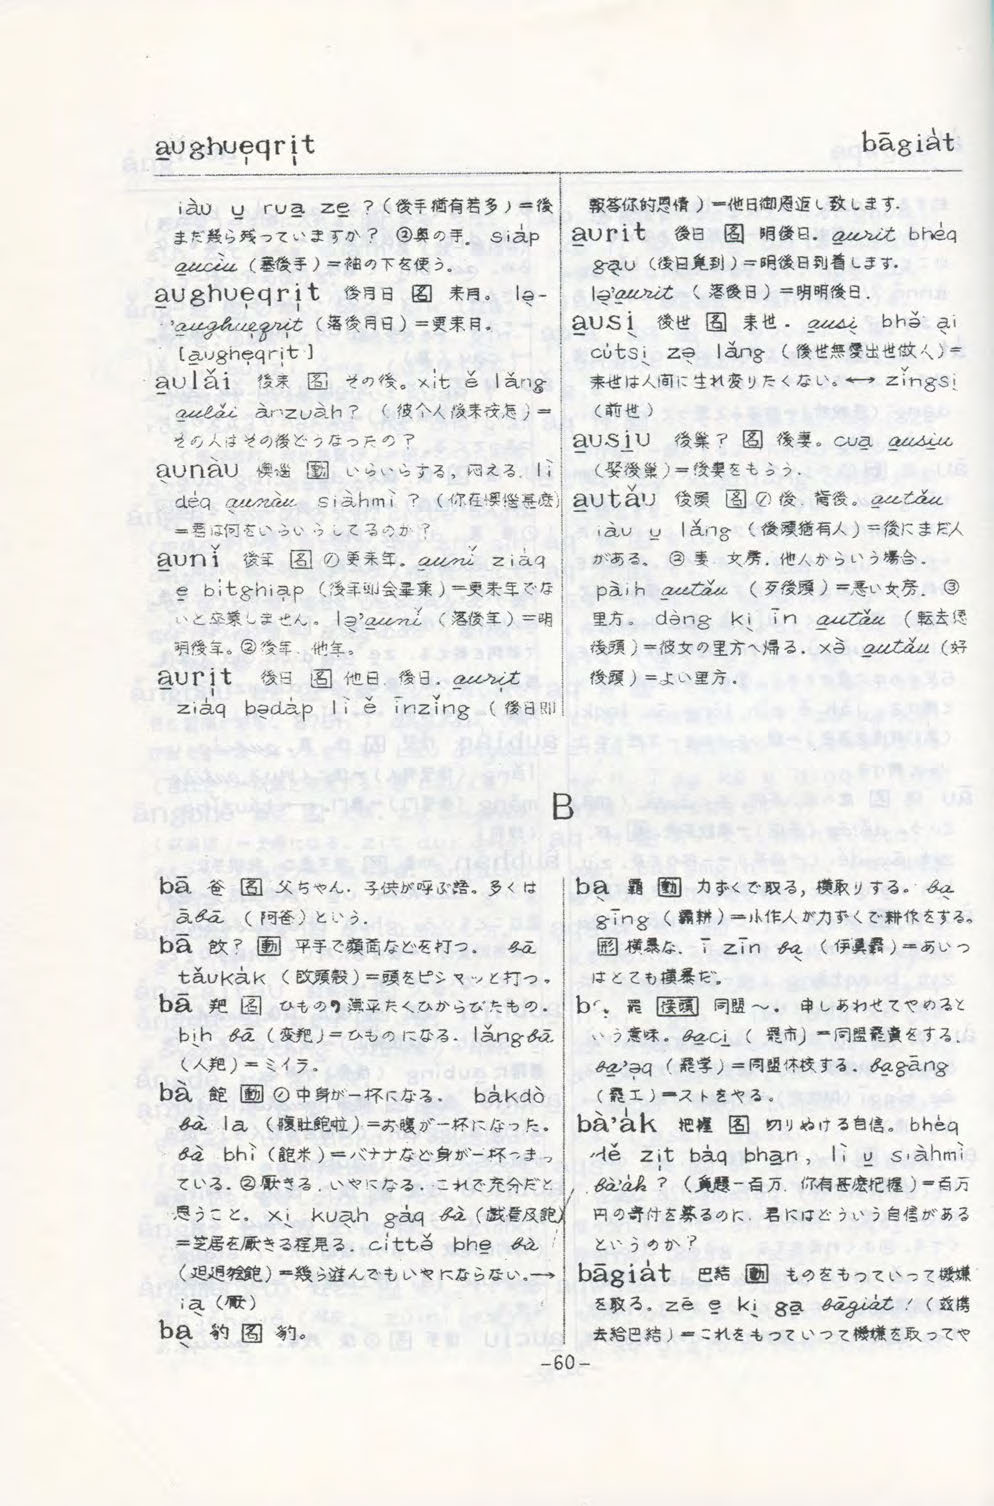 a̲ughuẹqrịt
bāgia̍t
iàu u̲ rua̲ ze̲ ?(後手猶有若多)=後
まだ幾ら残っていますか? ③奥の手. sia̍p
a̲uciu (塞後手)=袖の下を使う。
a̲ughuẹqrịt 後月日 名 来月。 lə̣-
'a̲ughuẹqrịt (落後月日)=更来月。
[a̲ughẹqrịt]
a̲ulǎi 後来 名 その後。xit ě lǎng
a̲ulǎi ànzuàh? (彼个人後来按怎)=
その人はその後どうなったの?
aunàu 懊惱 動 いらいらする, 悶える. lì
dẹq aunàu siàhmì ? (你在懊惱甚麽)
=君は何をいらいらしてるのか?
a̲unǐ 後年 名 ①更来年. a̲unǐ ziáq
e̲ bitghiap (後年即会畢業)=更来年でな
いと卒業しません。lə̣'a̲unǐ (落後年)=明
明後年。②後年. 他年。
a̲urit 後日 名 他日. 後日. a̲urit
ziáq bədáp lì ě īnzǐng (後日即
報答你的恩情)=他日御恩返し致します.
a̲urit 後日 名 明後日. a̲urit bhéq
gạu (後日覓到)=明後日到着します.
lə̣'a̲urit (落後日)=明明後日.
a̲usị 後世 名 来世. a̲usị bhə̌ ại
cútsị zə̣ lǎng (後世無愛出世做人)=
来世は人間に生れ変りたくない。←→ zǐngsị
(前世)
a̲usịu 後巣? 名 後妻。cua̲ a̲usịu
(娶後巣)=後妻をもらう.
a̲utǎu 後頭 名 ①後. 背後。a̲utǎu
iàu u̲ lǎng (後頭猶有人)=後にまだ人
がある。 ② 妻. 女房. 他人からいう場合.
pàih a̲utǎu (歹後頭)=悪い女房. ③
里方。dèng kị īn a̲utǎu (転去偲
後頭)=彼女の里方へ帰る. xə̀ a̲utǎu (好
後頭)=よい里方.
B
bā 爸 名 父ちゃん. 子供が呼ぶ語。多くは
ābā (阿爸)という.
bā 動 平手で顔面などを打つ. bā
tǎukák (殴頭殼)=頭をピシャッと打つ.
bā 羓 名 ひもの, 薄平たくひからびたもの.
bịh bā (変羓)=ひものになる. lǎngbā
(人羓)=ミイラ。
bà 飽 動 ①中身が一杯になる. bakdò
bà la (腹肚飽啦)=お腹が一杯になった.
bà bhì (飽米)=バナナなど身が一杯つまっ
ている. ②厭きる. いやになる. これで充分だと
思うこと。xị kuạh gáq bà (戯看及飽)
=芝居を厭きる程見る. cittə̌ bhe̲ bà
(𨑨迌飽)=幾ら遊んでもいやにならない.→
ịa (厭)
bạ 豹 名 豹。
bạ 霸 動 力ずくで取る, 横取りする. bạ
gīng (霸耕)=小作人が力ずくで耕作をする.
形 横暴な. ī zīn bạ (伊真霸)=あいつ
はとても横暴だ.
罷 接頭 同盟~. 申しあわせてやめると
いう意味。bacị (罷市)=同盟罷賣をする.
ba'əq (罷学)=同盟休校する. bagāng
(罷工)=ストをやる.
bà'ák 把握 名 切りぬける自信。bhéq
dě zit báq bhan, lì u̲ siàhmì
bà'ák ? (覓題一百万. 你有甚麽把握)=百万
円の寄付を募るのに. 君にはどういう自信がある
というのか?
bāgiát 巴結 動 ものをもっていって機嫌
を取る。zē e̲ kị gạ bāgiát ! (玆携
去給巴結)=これをもっていって機嫌を取ってや
-60-